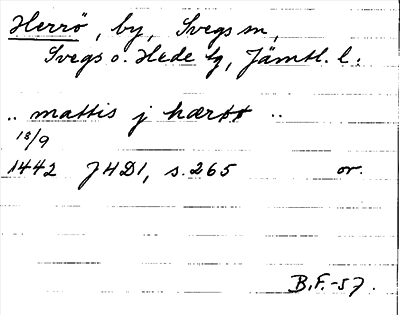 Herrö, by, Svegs sn,
Svegs o. Hede tg, Jämtl. l.
.. mattis j hærøø ..
18/9
1442 JHD1, s. 265 or.
B.F.-57.